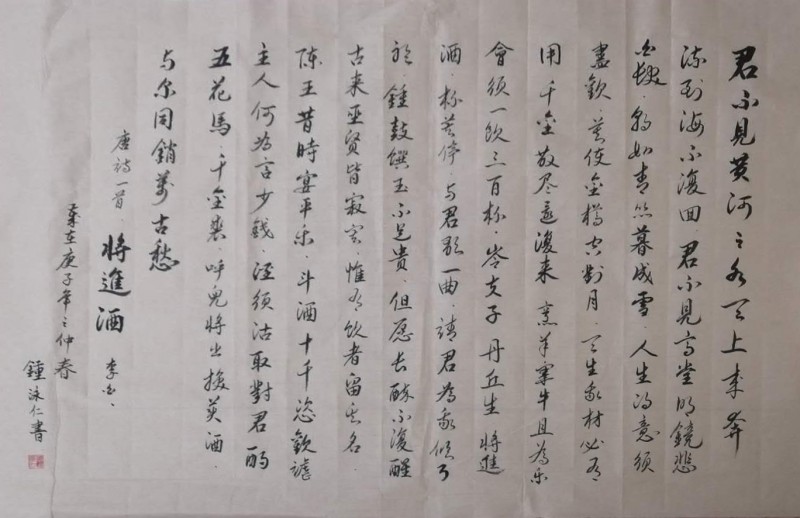 君不見黄河之水天上来奔
流到海不復回君不見高堂明鏡悲
白髮朝如青丝暮成雪人生得意须
盡歓莫使金樽空對月天生我材必有
用千金散尽還復来烹羊宰牛且為乐
會须一飲三百杯岑夫子丹丘生將進
酒杯莫停与君歌一曲請君為我傾耳
聽鍾鼓饌玉不足貴但愿长醉不復醒
古来圣贤皆寂寞惟有飲者留其名
陈王昔時宴平乐斗酒十千恣歓謔
主人何為言少钱径须沽取對君酌
五花馬千金裘呼兒將出換美酒
与尔同銷萬古愁
唐詩一首將進酒李白
歲在庚子年之仲春
鍾泳仁書